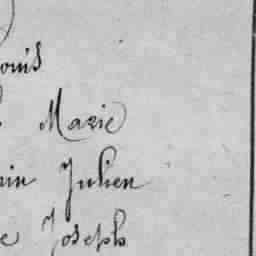 ouis
Marie
in Julien
e Joseph